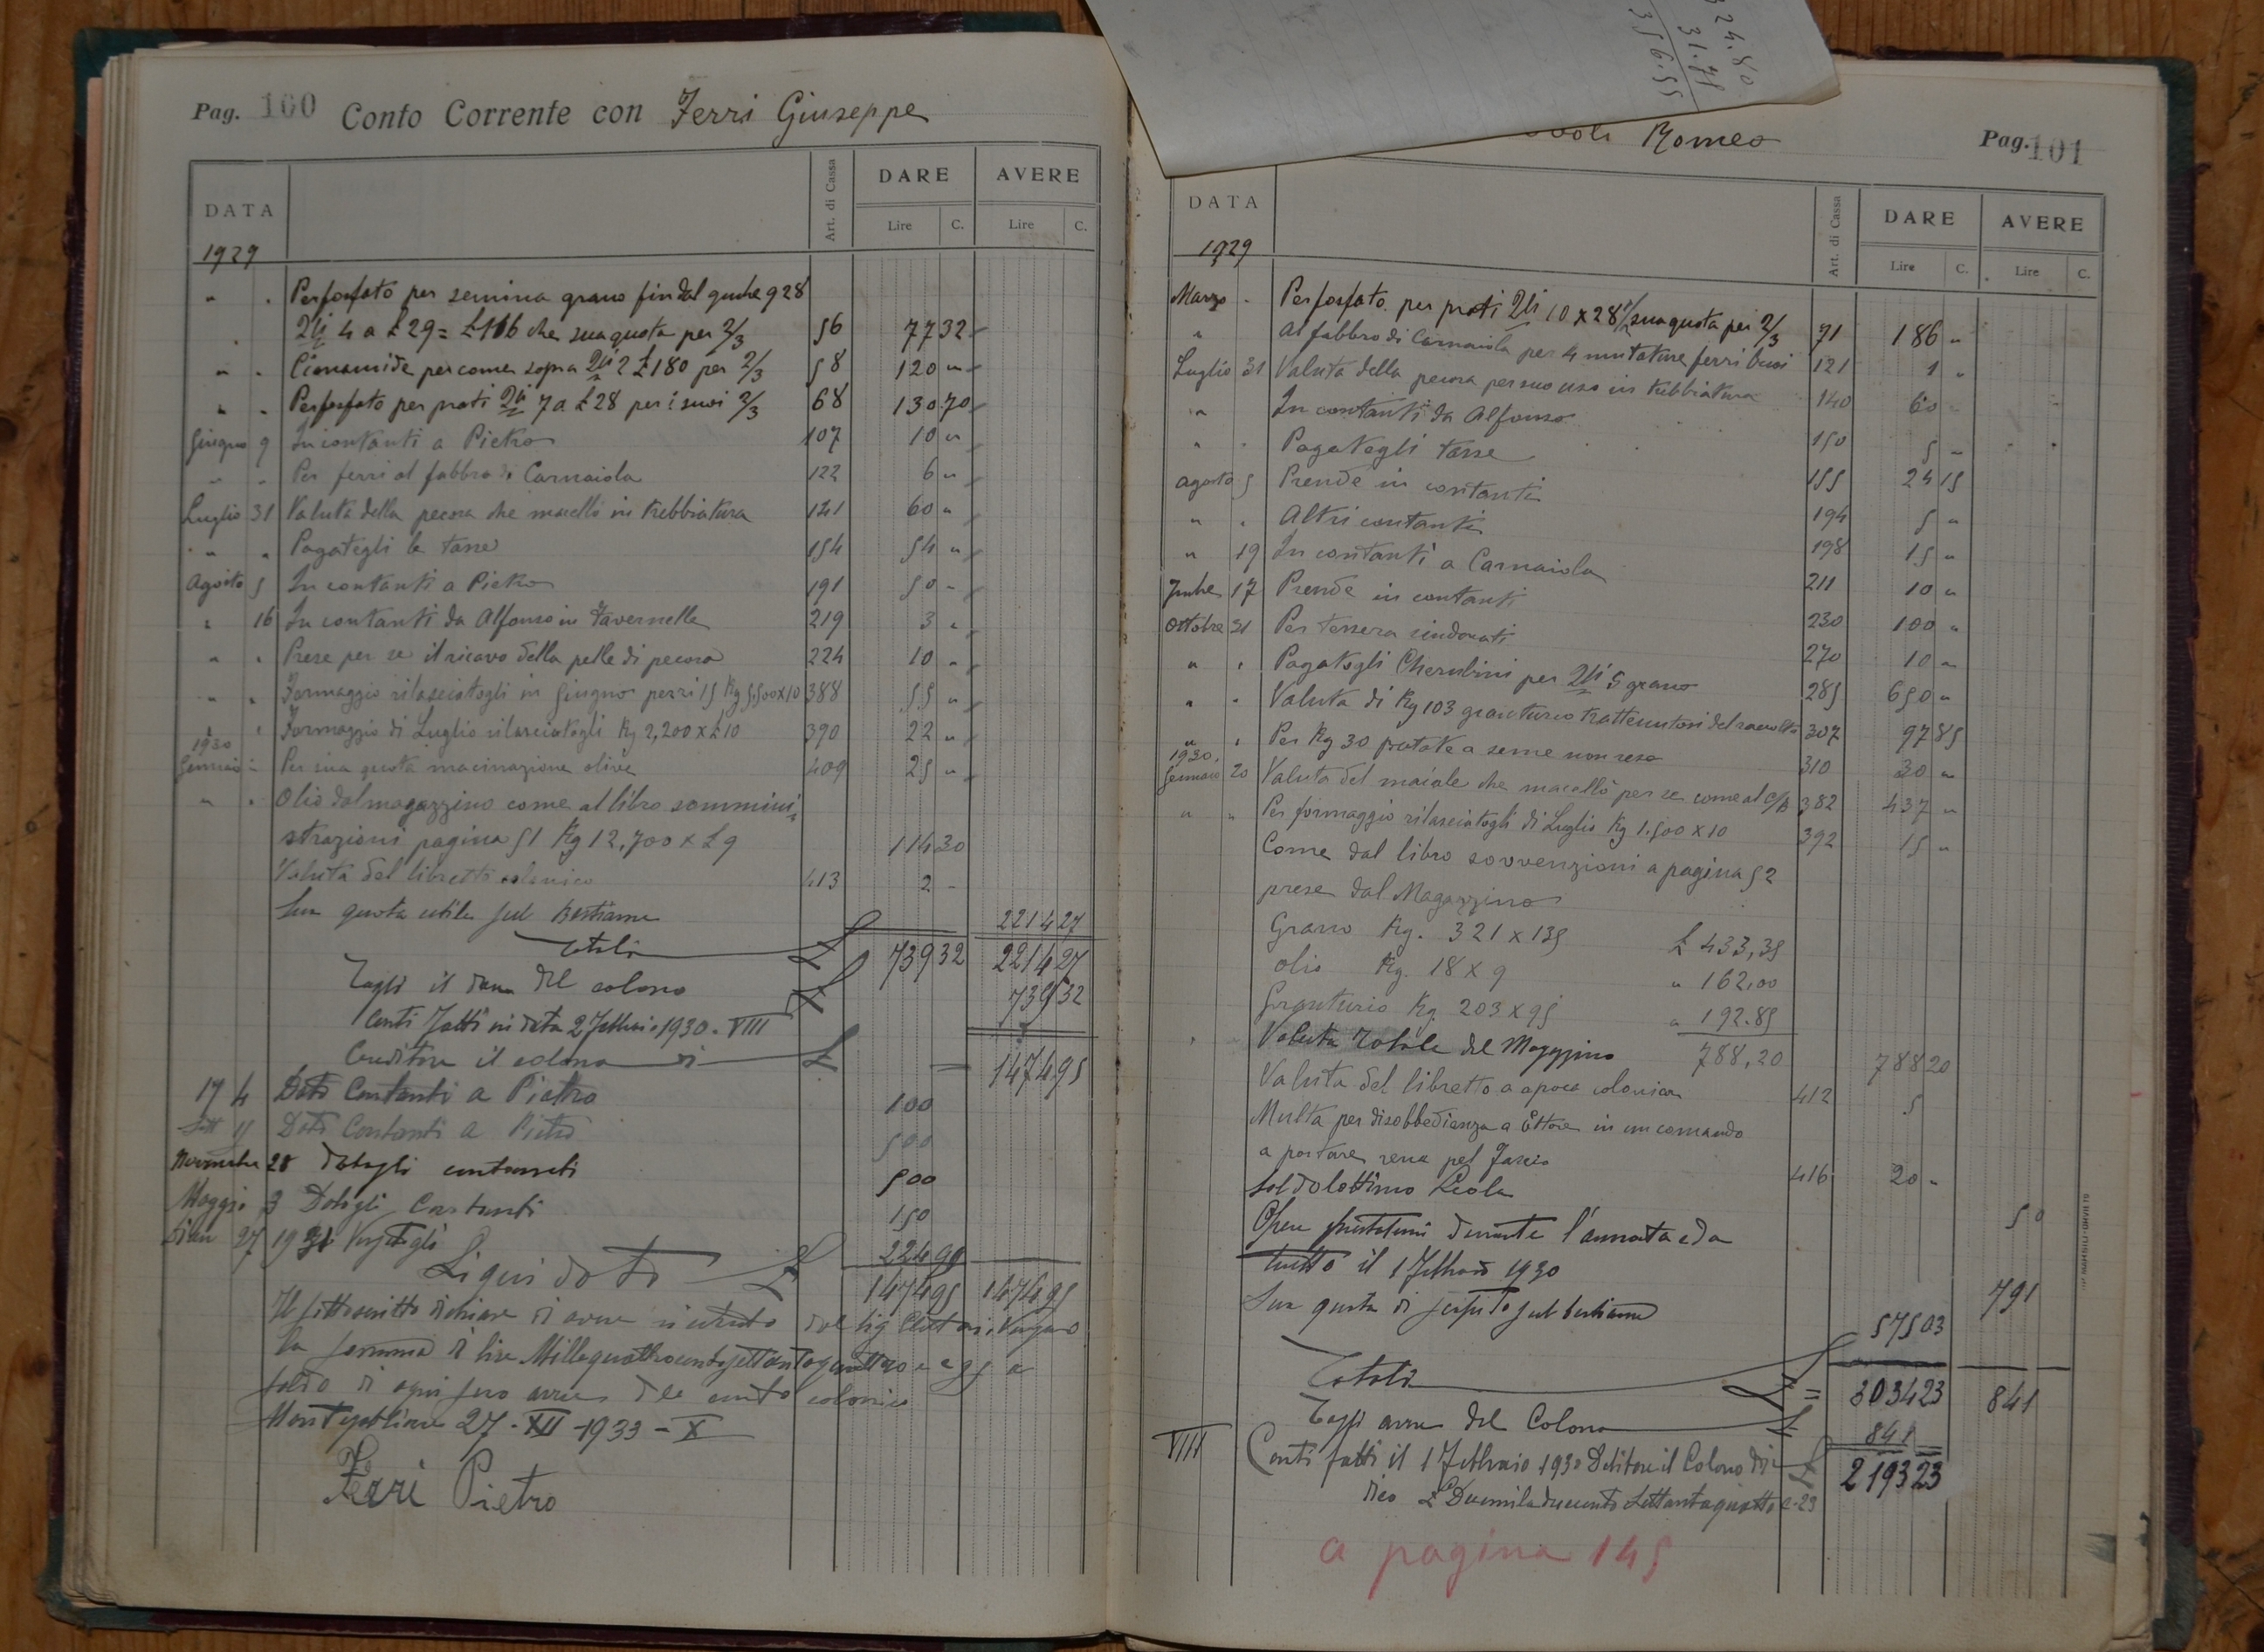 Pag. 100 Conto Corrente con Ferri Giuseppe
DATA Art. di Cassa DARE AVERE
Lire C. Lire C.
1929
" . Perfosfato per semina grano fin dal 928
2li 4 a £ 29 = £ 116 che sua quota per 2/3 56 77 32
" . Cianamide per come sopra 2li 2 £ 180 per 2/3 58 120 "
" . Perfosfato per prati 2li 7 a £ 28 per i suoi 2/3 68 130 70
Giugno 9 In contanti a Pietro 107 10 "
" " Per ferri al fabbro di Carnaiola 122 6 "
Luglio 31 Valuta della pecora che macellò in trebbiatura 141 60 "
" " Pagategli le tasse 154 54 "
Agosto 5 In contanti a Pietro 191 50 "
" 16 In contanti da Alfonso in Tavernelle 219 3 "
" . Prese per se il ricavo della pelle di pecora 224 10 "
" . Formaggio rilasciatogli in Giugno Kg 5,500 x 10 388 55 "
" . Formaggio di Luglio rilasciatogli Kg 2,200 x £ 10 390 22 "
1930
Gennaio - Per sua quota macinazione olive 409 25 "
" . Olio dal magazzino come al libro sommini-
strazioni pagina 51 Kg 12,700 x £ 9 114 30
Valuta del libretto colonico 413 2 -
Sua quota utile sul Bestiame 2214 27
Totali £ 739 32 2214 27
Tolgi il dare del colono £ 739 32
Conti fatti in data 2 Febbraio 1930 - VIII
Creditore il colono di £ — 1474 95
17 4 Dato Contanti a Pietro 100
Sett Dato Contanti a Pietro 500
Novembre 28 datogli contanti 500
Maggio 3 Datogli Contanti 150
27 19 31 224 95
Liquidato £ 1474 95 1474 95
Il sottoscritto dichiara di avere ricevuto dal Sig
la somma di lire Millequattrocentosettantaquattro e 95 a
saldo di ogni suo avere del conto colonico
27 - XII - 1933 - X
Ferri Pietro
324.80
31.71
356.55
Romeo Pag. 101
DATA Art. di Cassa DARE AVERE
Lire C. Lire C.
1929
Marzo - Perfosfato per prati 2li 10 x 28 sua quota per 2/3 71 186 "
" Al fabbro di Carnaiola per 4 mutature ferri buoi 121 1 "
Luglio 31 Valuta della pecora per suo uso in trebbiatura 140 60 -
" In contanti da Alfonso 150 5 "
" . Pagategli tasse 155 24 15
Agosto 5 Prende in contanti 194 5 "
" . Altri contanti 198 15 "
" 19 In contanti a Carnaiola 211 10 "
17 Prende in contanti 230 100 "
Ottobre 31 Per tessera sindacati 270 10 "
" . Pagatogli Cherubini per 2li 5 grano 285 650 "
" . Valuta di Kg 103 granturco trattenutosi del raccolto 307 97 85
" . Per Kg 30 patate a seme non rese 310 30 "
1930
Gennaio 20 Valuta del maiale che macellò per se come al C/B 382 437 "
" " Per formaggio rilasciatogli di Luglio Kg 1,500 x 10 392 15 "
Come dal libro sovvenzioni a pagina 52
prese dal Magazzino
Grano Kg. 321 x 135 £ 433,35
Olio Kg. 18 x 9 " 162,00
Granturco Kg. 203 x 95 " 192.85
Valuta Totale del Magazzino 788,20 788 20
Valuta del libretto a apoca colonica 412 5
Multa per disobbedienza a Ettore in un comando
a portare rena pel Fascio 416 20 "
50
Opere durante l'annata e da
tutto il 1 Febbraio 1930 791
Sua quota di scapito sul bestiame 575 03
Totali £ = 3034 23 841
Tolgi avere del Colono £ 841
VIII Conti fatti il 1 Febbraio 1930 Debitore il Colono di £ 2193 23
dico £
a pagina 145